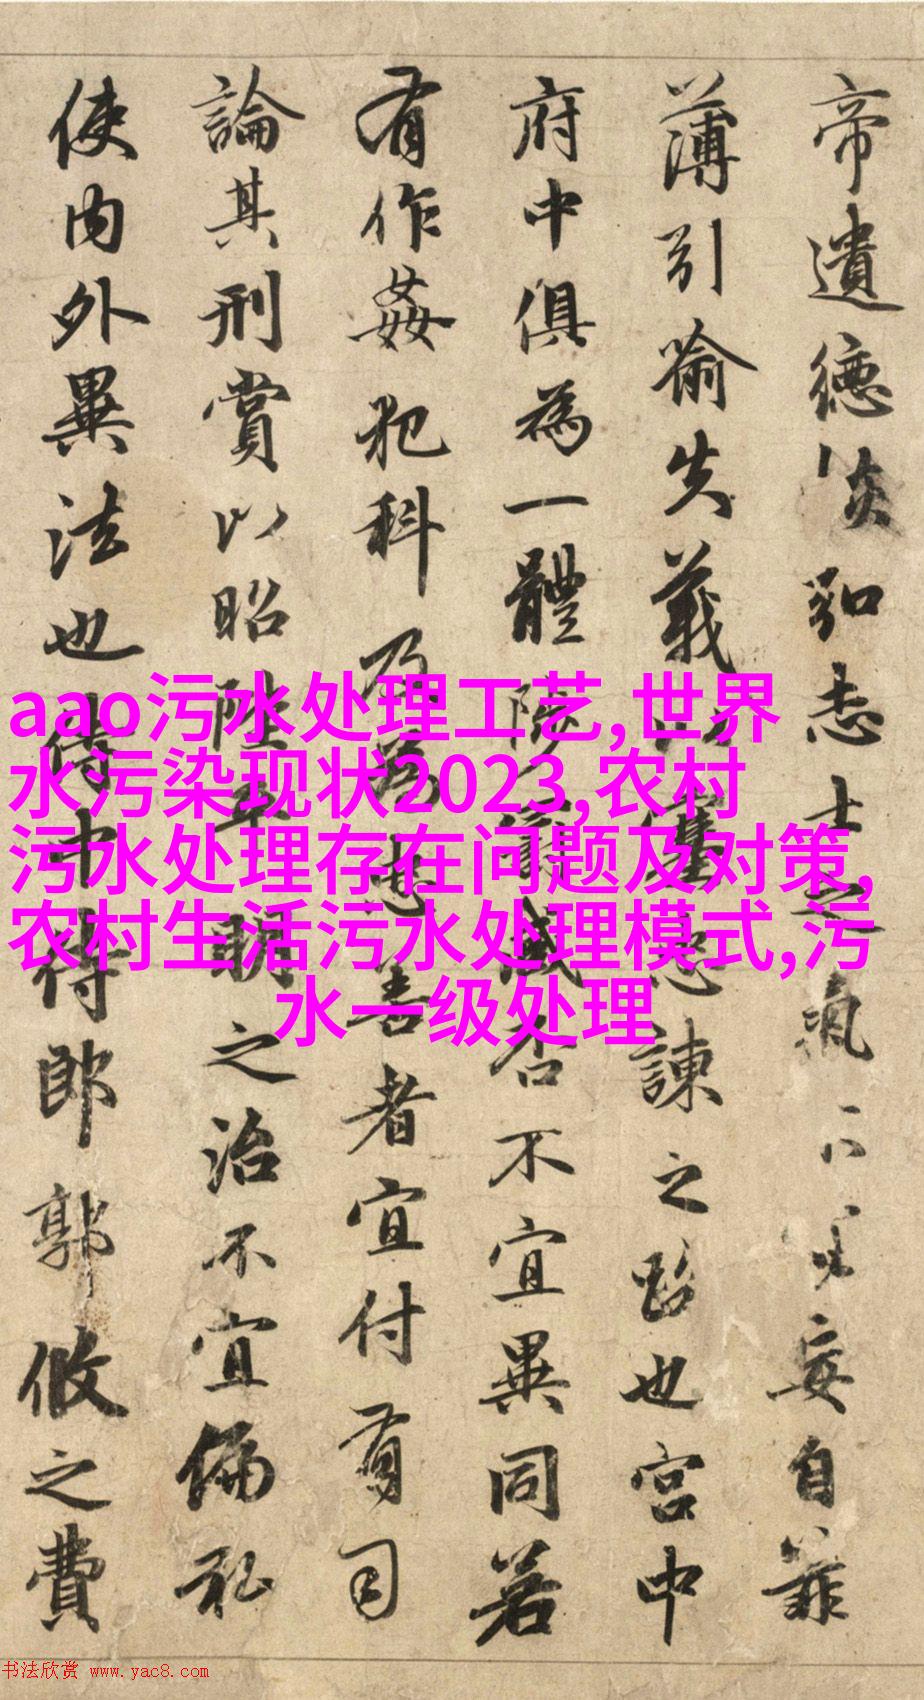 帝遺德恢弘志士之氣不宜妄自菲
薄引喻失義以塞忠諫之路也宮中
府中俱為一體陟罰臧否不宜異同若
有作姦犯科及為忠善者宜付有司
論其刑賞以昭陛平明之治不宜偏私
使内外異法也侍中侍郎郭攸之費
aao污水处理工艺,世界
水污染现状2023,农村
污水处理存在问题及对策,
农村生活污水处理模式,污
水一级处理
书法欣赏 www.yac8.com